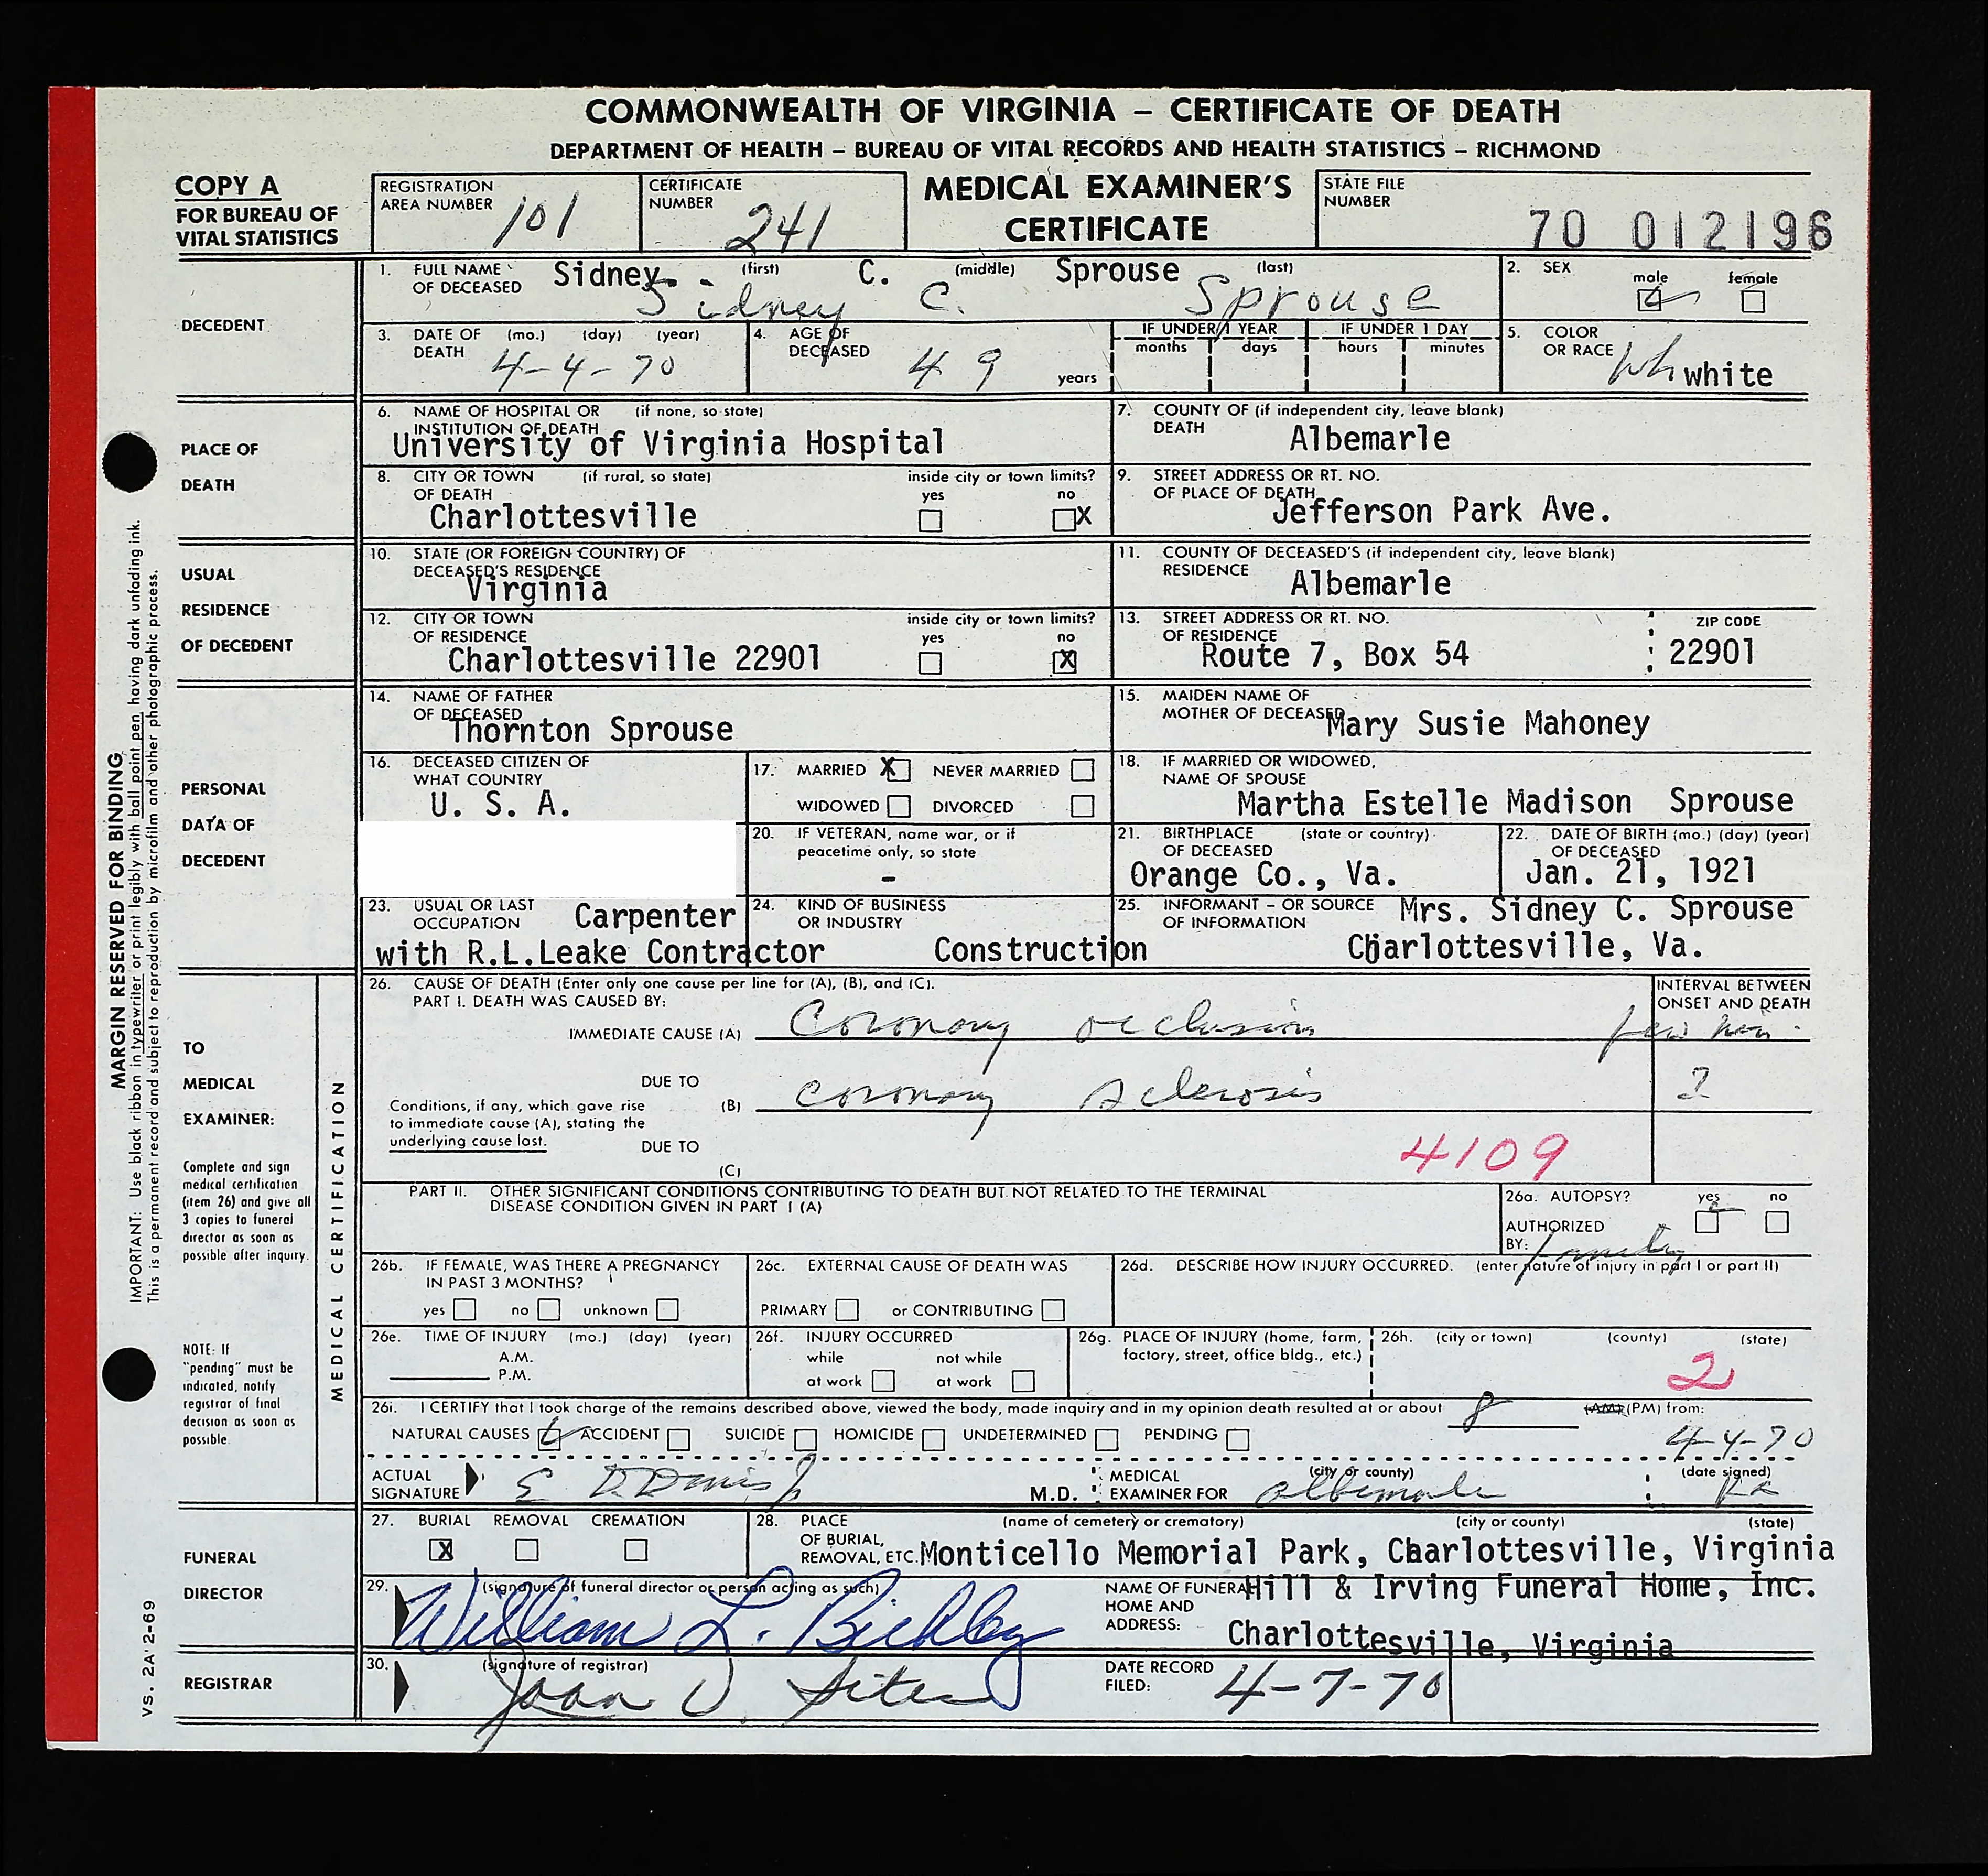 COMMONWEALTH OF VIRGINIA – CERTIFICATE OF DEATH
DEPARTMENT OF HEALTH – BUREAU OF VITAL RECORDS AND HEALTH STATISTICS – RICHMOND
COPY A
FOR BUREAU OF
VITAL STATISTICS
REGISTRATION
AREA NUMBER 101
CERTIFICATE
NUMBER 241
MEDICAL EXAMINER'S
CERTIFICATE
STATE FILE
NUMBER
70 012196
DECEDENT
1. FULL NAME OF DECEASED (first) (middle) (last)
Sidney C. Sprouse
Sidney C. Sprouse
2. SEX male female
3. DATE OF DEATH (mo.) (day) (year)
4-4-70
4. AGE OF DECEASED
49 years
IF UNDER 1 YEAR
months days
IF UNDER 1 DAY
hours minutes
5. COLOR OR RACE
Wh white
PLACE OF
DEATH
6. NAME OF HOSPITAL OR INSTITUTION OF DEATH (if none, so state)
University of Virginia Hospital
7. COUNTY OF DEATH (if independent city, leave blank)
Albemarle
8. CITY OR TOWN OF DEATH (if rural, so state)
Charlottesville
inside city or town limits?
yes no X
9. STREET ADDRESS OR RT. NO. OF PLACE OF DEATH
Jefferson Park Ave.
USUAL
RESIDENCE
OF DECEDENT
10. STATE (OR FOREIGN COUNTRY) OF DECEASED'S RESIDENCE
Virginia
11. COUNTY OF DECEASED'S RESIDENCE (if independent city, leave blank)
Albemarle
12. CITY OR TOWN OF RESIDENCE
Charlottesville 22901
inside city or town limits?
yes no X
13. STREET ADDRESS OR RT. NO. OF RESIDENCE
Route 7, Box 54
ZIP CODE
22901
PERSONAL
DATA OF
DECEDENT
14. NAME OF FATHER OF DECEASED
Thornton Sprouse
15. MAIDEN NAME OF MOTHER OF DECEASED
Mary Susie Mahoney
16. DECEASED CITIZEN OF WHAT COUNTRY
U. S. A.
17. MARRIED X NEVER MARRIED
WIDOWED DIVORCED
18. IF MARRIED OR WIDOWED, NAME OF SPOUSE
Martha Estelle Madison Sprouse
20. IF VETERAN, name war, or if peacetime only, so state
-
21. BIRTHPLACE OF DECEASED (state or country)
Orange Co., Va.
22. DATE OF BIRTH OF DECEASED (mo.) (day) (year)
Jan. 21, 1921
23. USUAL OR LAST OCCUPATION
Carpenter
with R.L.Leake Contractor
24. KIND OF BUSINESS OR INDUSTRY
Construction
25. INFORMANT – OR SOURCE OF INFORMATION
Mrs. Sidney C. Sprouse
Charlottesville, Va.
TO
MEDICAL
EXAMINER:
Complete and sign
medical certification
(item 26) and give all
3 copies to funeral
director as soon as
possible after inquiry.
NOTE: If
"pending" must be
indicated, notify
registrar of final
decision as soon as
possible.
MEDICAL CERTIFICATION
26. CAUSE OF DEATH (Enter only one cause per line for (A), (B), and (C).
PART I. DEATH WAS CAUSED BY:
INTERVAL BETWEEN
ONSET AND DEATH
IMMEDIATE CAUSE (A) Coronary occlusion few min.
DUE TO
(B) coronary sclerosis ?
Conditions, if any, which gave rise
to immediate cause (A), stating the
underlying cause last.
DUE TO
(C)
4109
PART II. OTHER SIGNIFICANT CONDITIONS CONTRIBUTING TO DEATH BUT NOT RELATED TO THE TERMINAL
DISEASE CONDITION GIVEN IN PART I (A)
26a. AUTOPSY? yes no
AUTHORIZED
BY: Family
26b. IF FEMALE, WAS THERE A PREGNANCY
IN PAST 3 MONTHS?
yes no unknown
26c. EXTERNAL CAUSE OF DEATH WAS
PRIMARY or CONTRIBUTING
26d. DESCRIBE HOW INJURY OCCURRED. (enter nature of injury in part I or part II)
26e. TIME OF INJURY (mo.) (day) (year)
A.M.
P.M.
26f. INJURY OCCURRED
while at work not while at work
26g. PLACE OF INJURY (home, farm,
factory, street, office bldg., etc.)
26h. (city or town) (county) (state)
2
26i. I CERTIFY that I took charge of the remains described above, viewed the body, made inquiry and in my opinion death resulted at or about 8 (AM) (PM) from:
NATURAL CAUSES ACCIDENT SUICIDE HOMICIDE UNDETERMINED PENDING
4-4-70
ACTUAL
SIGNATURE E D Davis Jr M.D.
MEDICAL
EXAMINER FOR (city or county) Albemarle
(date signed)
FUNERAL
DIRECTOR
27. BURIAL REMOVAL CREMATION
X
28. PLACE OF BURIAL, REMOVAL, ETC. (name of cemetery or crematory) (city or county) (state)
Monticello Memorial Park, Charlottesville, Virginia
29. (signature of funeral director or person acting as such)
William L. Bickley
NAME OF FUNERAL HOME AND ADDRESS:
Hill & Irving Funeral Home, Inc.
Charlottesville, Virginia
REGISTRAR
30. (signature of registrar)
Joan
DATE RECORD
FILED: 4-7-70
MARGIN RESERVED FOR BINDING
IMPORTANT: Use black ribbon in typewriter or print legibly with ball point pen having dark unfading ink.
This is a permanent record and subject to reproduction by microfilm and other photographic process.
VS. 2A 2-69